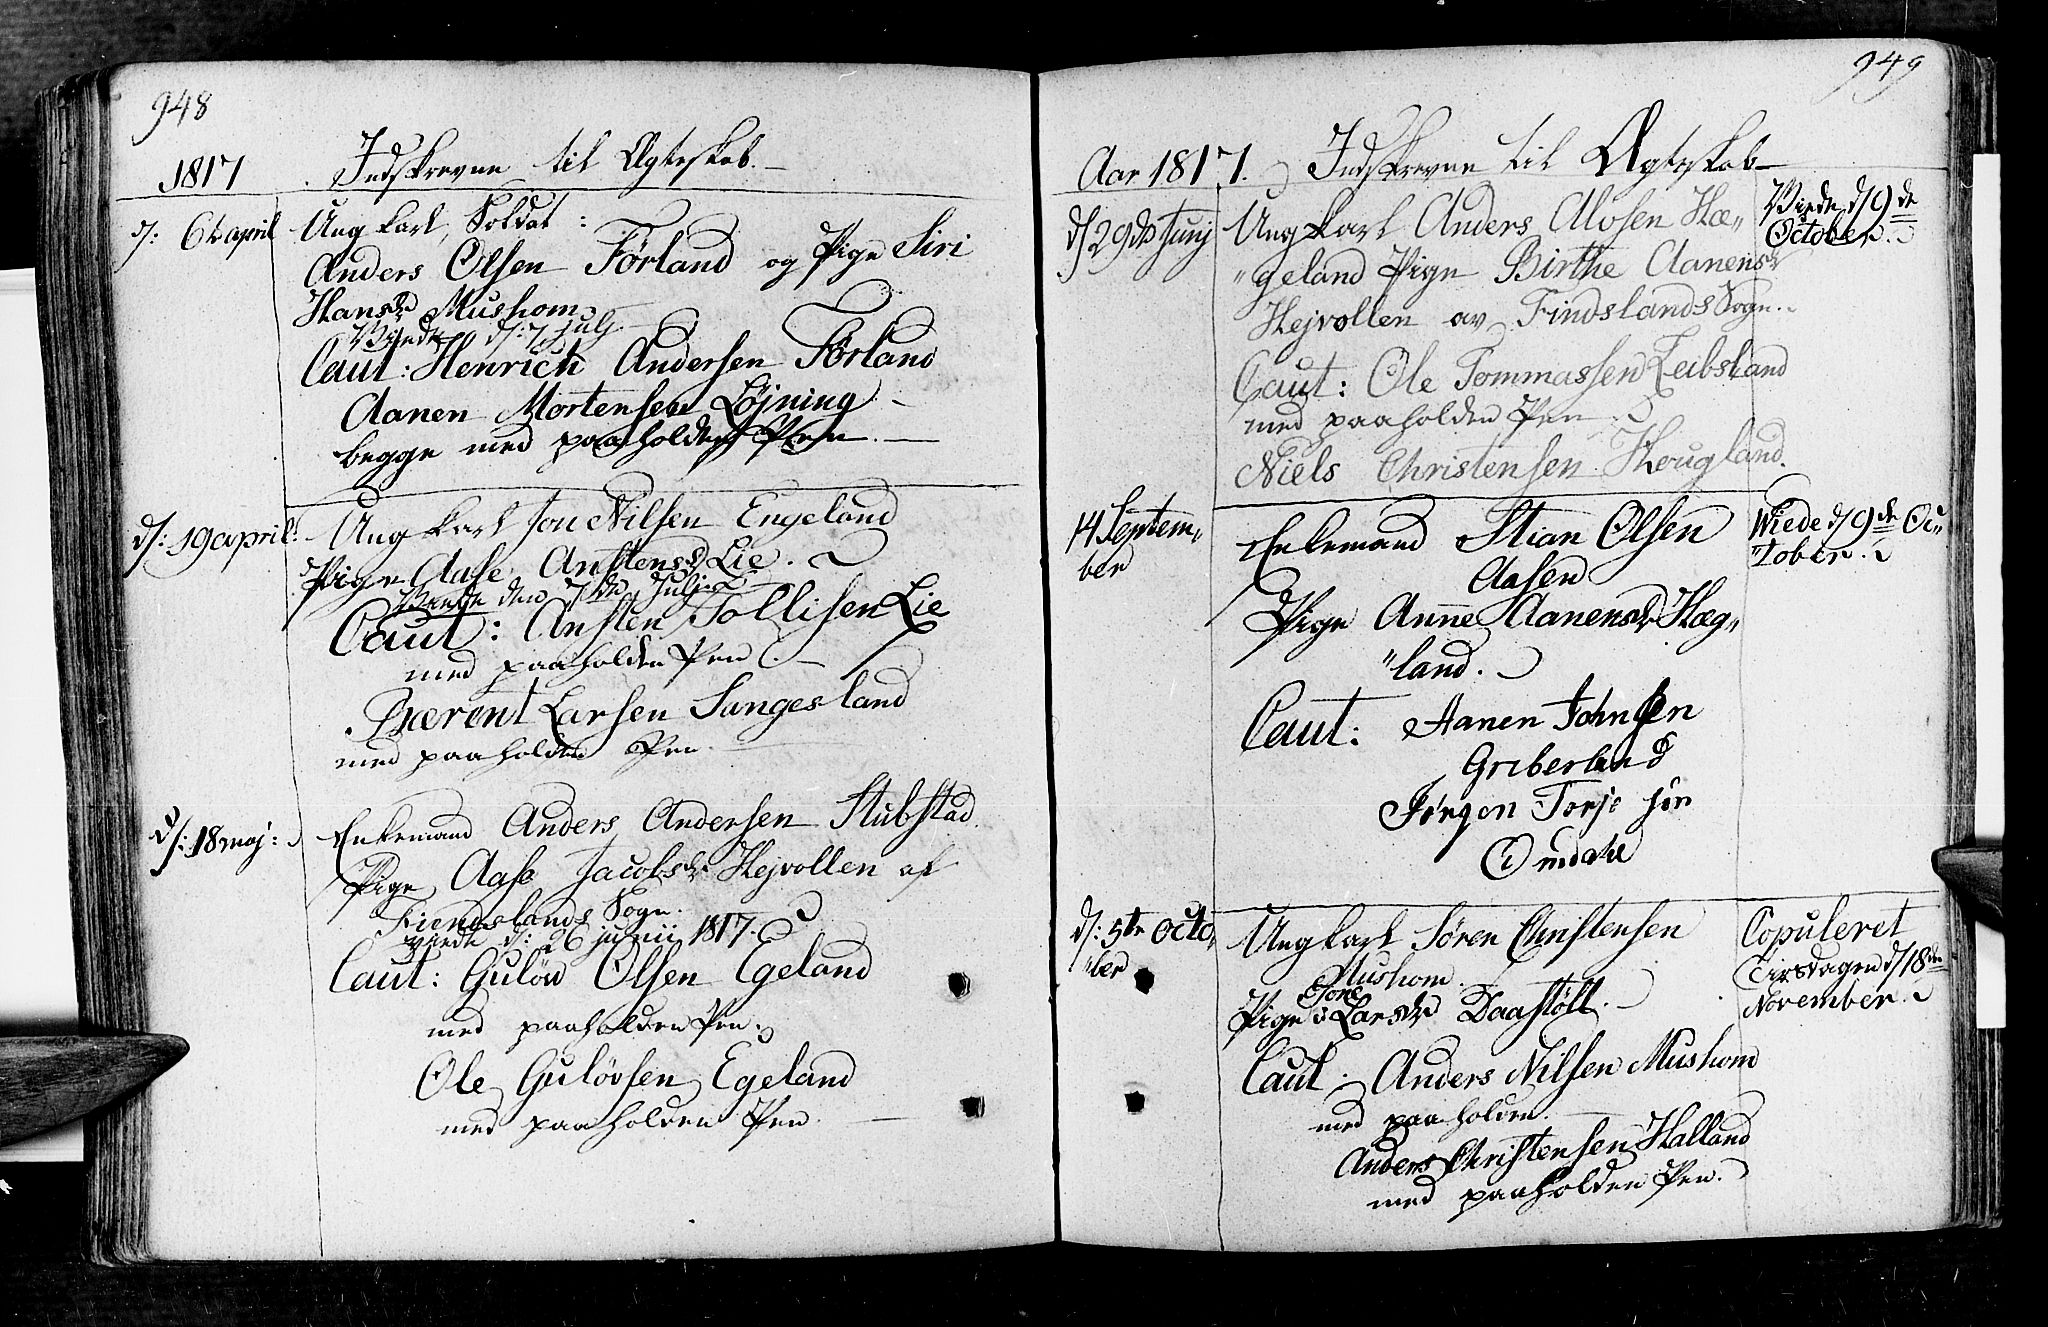 948
1817 Indskrevne til Ægteskab.
d: 6te april Ung karl, Soldat:
Anders Olsen Förland og Pige Siri
Hansdr Mushom
Viede d: 7 julj
Caut: Henrich Andersen Förland
Aanen Mortensen Löjning
begge med paaholden Pen.
d: 19 april: Ung karl Jon Nilsen Engeland
Pige Aase Anstensdr Lie.
Viede den 7de Julj
Caut: Ansten Tollisen Lie
med paaholden Pen.
Bærent Larsen Sangesland
med paaholden Pen.
d: 18 maj: Enkemand Anders Andersen Stubstad
Pige Aase Jacobsdr Hejvollen af
Fiendslands Sogn.
viede d: 26 junii 1817.
Caut: Gulöv Olsen Egeland
med paaholden Pen.
Ole Gulövsen Egeland
med paaholden Pen.
949
Aar 1817. Indskrevne til Ægteskab
d 29de Junj Ung karl Anders Alosen Hæ-
geland Pige Birthe Aanensdr
Hejvollen av Findslands Sogn.
Caut: Ole Tommassen Leibsland
med paaholden Pen
Niels Christensen Hougland.
Viede d 9de
October.
14 Septem-
ber
Enkemand Stian Olsen
Aasen
Pige Anne Aanensdr Hæg-
land.
Caut: Aanen Johnsen
Griberland
Jörgen Torje sön
Omdahl
Wiede d 9de Oc-
tober.
d: 5te Octo-
ber
Ung karl Sören Christensen
Mushom.
Tone
Pige Larsdr Daastöll.
Caut. Anders Nilsen Mushom
med paaholden.
Anders Christensen Halland
med paaholden Pen.
Copuleret
Tirsdagen d 18de
November.